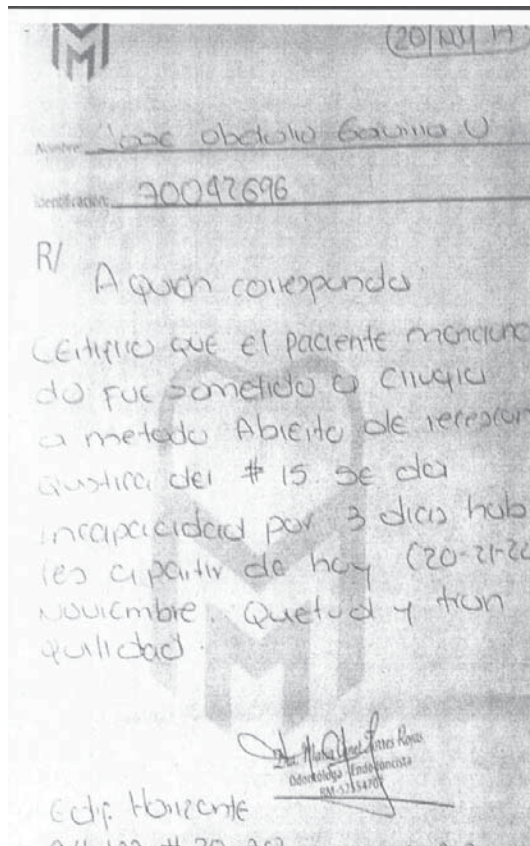 20/Nov/19
Nombre: Jose Obdulio Gaviria U
Identificación: 70042696
R/
A quien corresponda
Certifico que el paciente menciona
do fue sometido a cirugia
a metodo Abierto de
del # 15. se da
incapacidad por 3 dias habi
les a partir de hoy (20-21-22
Noviembre. Quetud y tran
quilidad.
Dra. Torres Rojas
Odontóloga Endodoncista
Edif. Horizonte